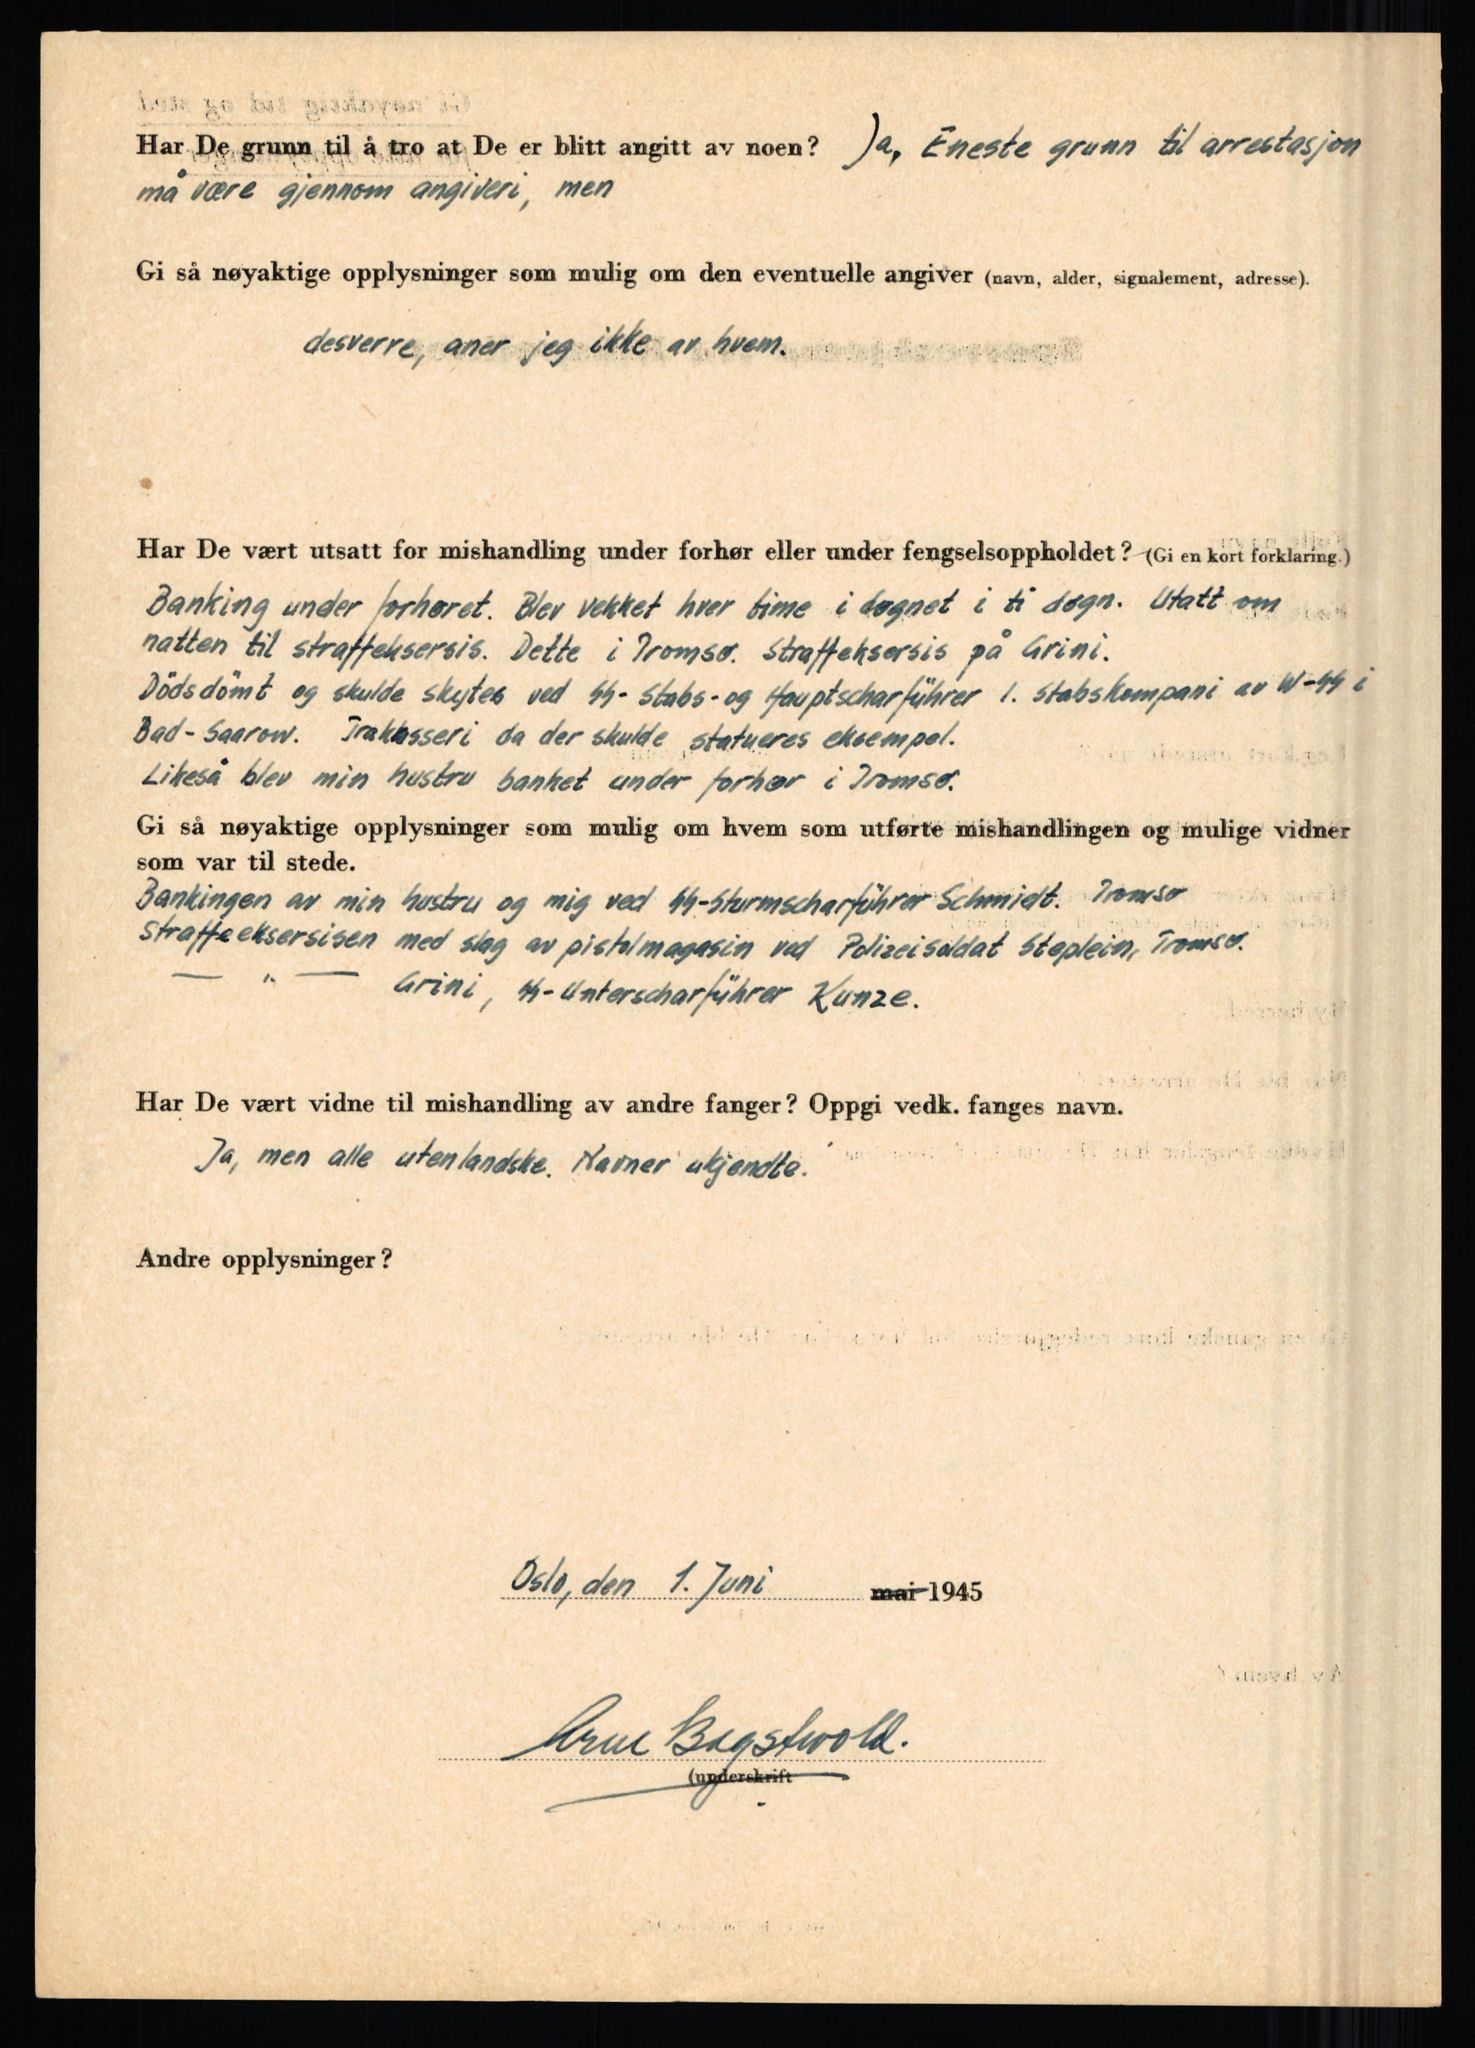 Har De grunn til å tro at De er blitt angitt av noen? Ja, Eneste grunn til arrestasjon
må være gjennom angiveri, men
Gi så nøyaktige opplysninger som mulig om den eventuelle angiver (navn, alder, signalement, adresse).
desverre, aner jeg ikke av hvem.
Har De vært utsatt for mishandling under forhør eller under fengselsoppholdet? (Gi en kort forklaring.)
Banking under forhøret. Blev vekket hver time i døgnet i ti døgn. Utatt om
natten til straffeksersis. Dette i Tromsø. Straffeksersis på Grini.
Dödsdömt og skulde skytes ved SS-Stabs-og Hauptscharführer 1. Stabskompani av W-SS i
Bad-Saarow. Trakasseri da der skulde statueres eksempel.
Likeså blev min hustru banket under forhør i Tromsø.
Gi så nøyaktige opplysninger som mulig om hvem som utførte mishandlingen og mulige vidner
som var til stede.
Bankingen av min hustru og mig ved SS-Sturmscharführer Schmidt. Tromsø
Straffeeksersisen med slag av pistolmagasin ved Polizeisoldat Steplein, Tromsø.
— " — Grini, SS-Unterscharführer Kunze.
Har De vært vidne til mishandling av andre fanger? Oppgi vedk. fanges navn.
Ja, men alle utenlandske. Navner ukjendte.
Andre opplysninger?
Oslo, den 1. Juni mai 1945
Arne Bogstwold.
(underskrift